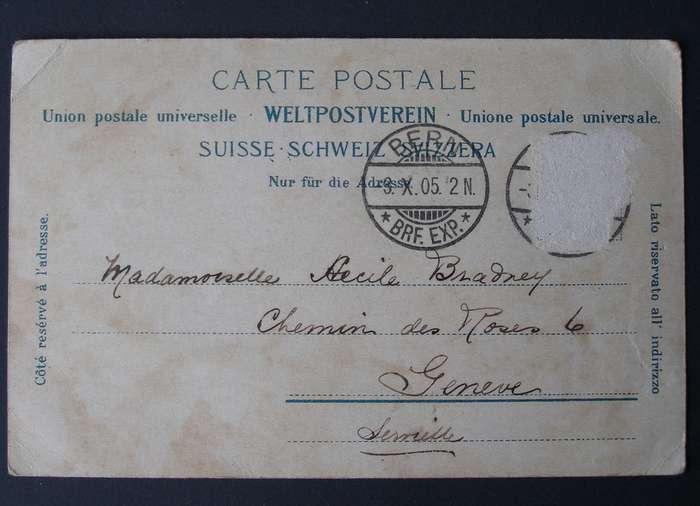 CARTE POSTALE
Union postale universelle · WELTPOSTVEREIN · Unione postale universale.
SUISSE · SCHWEIZ · SVIZZERA
Nur für die Adresse.
BERN
-3. X. 05. 2 N.
* BRF. EXP. *
Côté resérvé à l'adresse.
Lato riservato all' indirizzo
Madamoiselle Bradney
Chemin des Roses 6
Geneve